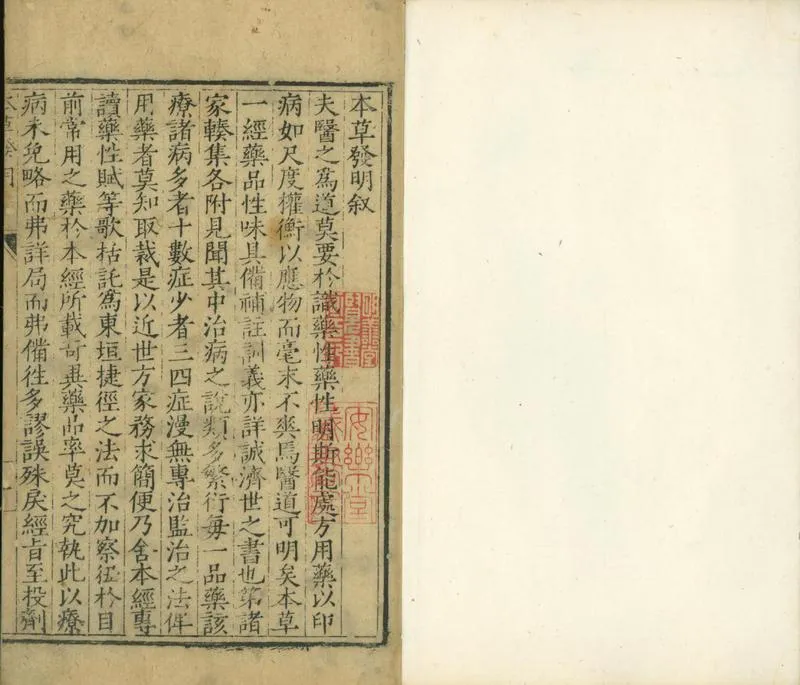 本草發明叙
夫醫之爲道莫要扵識藥性藥性明斯能處方用藥以印
病如尺度權衡以應物而毫末不爽焉醫道可明矣本草
一經藥品性味具備補註訓義亦詳誠濟世之書也第諸
家輳集各附見聞其中治病之說類多繁衍每一品藥該
療諸病多者十數症少者三四症漫無專治監治之法俾
用藥者莫知取裁是以近世方家務求簡便乃舍本經專
讀藥性賦等歌括託爲東垣捷徑之法而不加察徑扵目
前常用之藥扵本經所載奇異藥品率莫之究執此以療
病未免略而弗詳局而弗備徃多謬誤殊戾經旨至投劑
本草發明
安樂堂